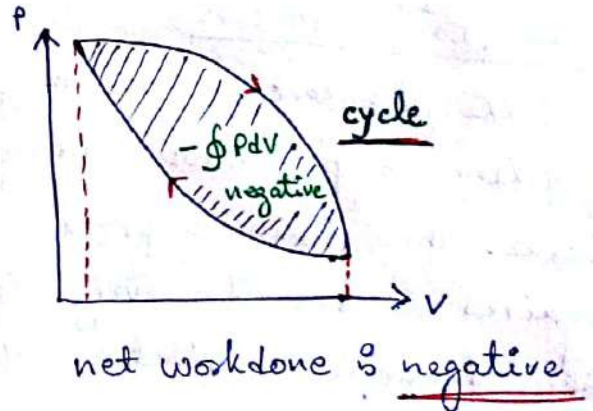 P
cycle
- ∮ PdV
negative
V
net workdone is negative